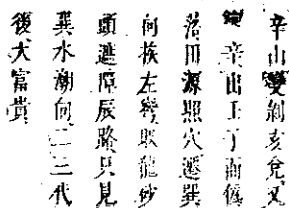 辛山雙剝亥兌又
辛出丁偃
落田源照穴遷巽
向挨左彎取龍砂
頭遮障辰路只見
巽水潮向二三代
後大富貴